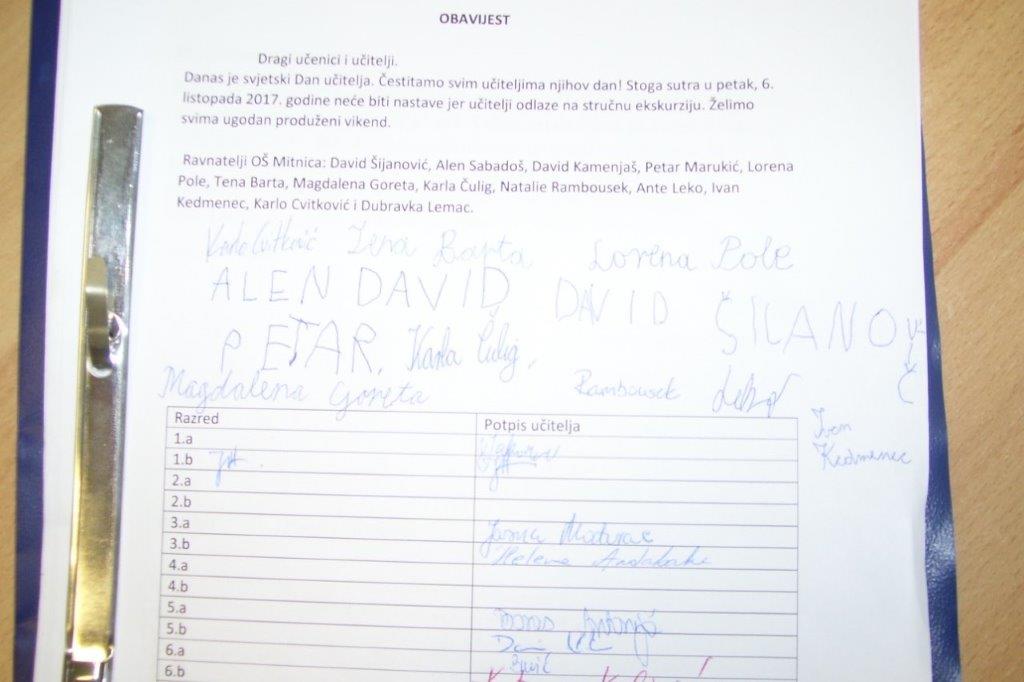 OBAVIJEST
Dragi učenici i učitelji.
Danas je svjetski Dan učitelja. Čestitamo svim učiteljima njihov dan! Stoga sutra u petak, 6.
listopada 2017. godine neće biti nastave jer učitelji odlaze na stručnu ekskurziju. Želimo
svima ugodan produženi vikend.
Ravnatelji OŠ Mitnica: David Šijanović, Alen Sabadoš, David Kamenjaš, Petar Marukić, Lorena
Pole, Tena Barta, Magdalena Goreta, Karla Čulig, Natalie Rambousek, Ante Leko, Ivan
Kedmenec, Karlo Cvitković i Dubravka Lemac.
Karlo Cvitković Tena Barta Lorena Pole
ALEN DAVID DAVID
PETAR, Karla Čulig,
Magdalena Goreta Rambousek
Ivan
Kedmenec
Razred Potpis učitelja
1.a
1.b
2.a
2.b
3.a
3.b
4.a
4.b
5.a
5.b
6.a
6.b